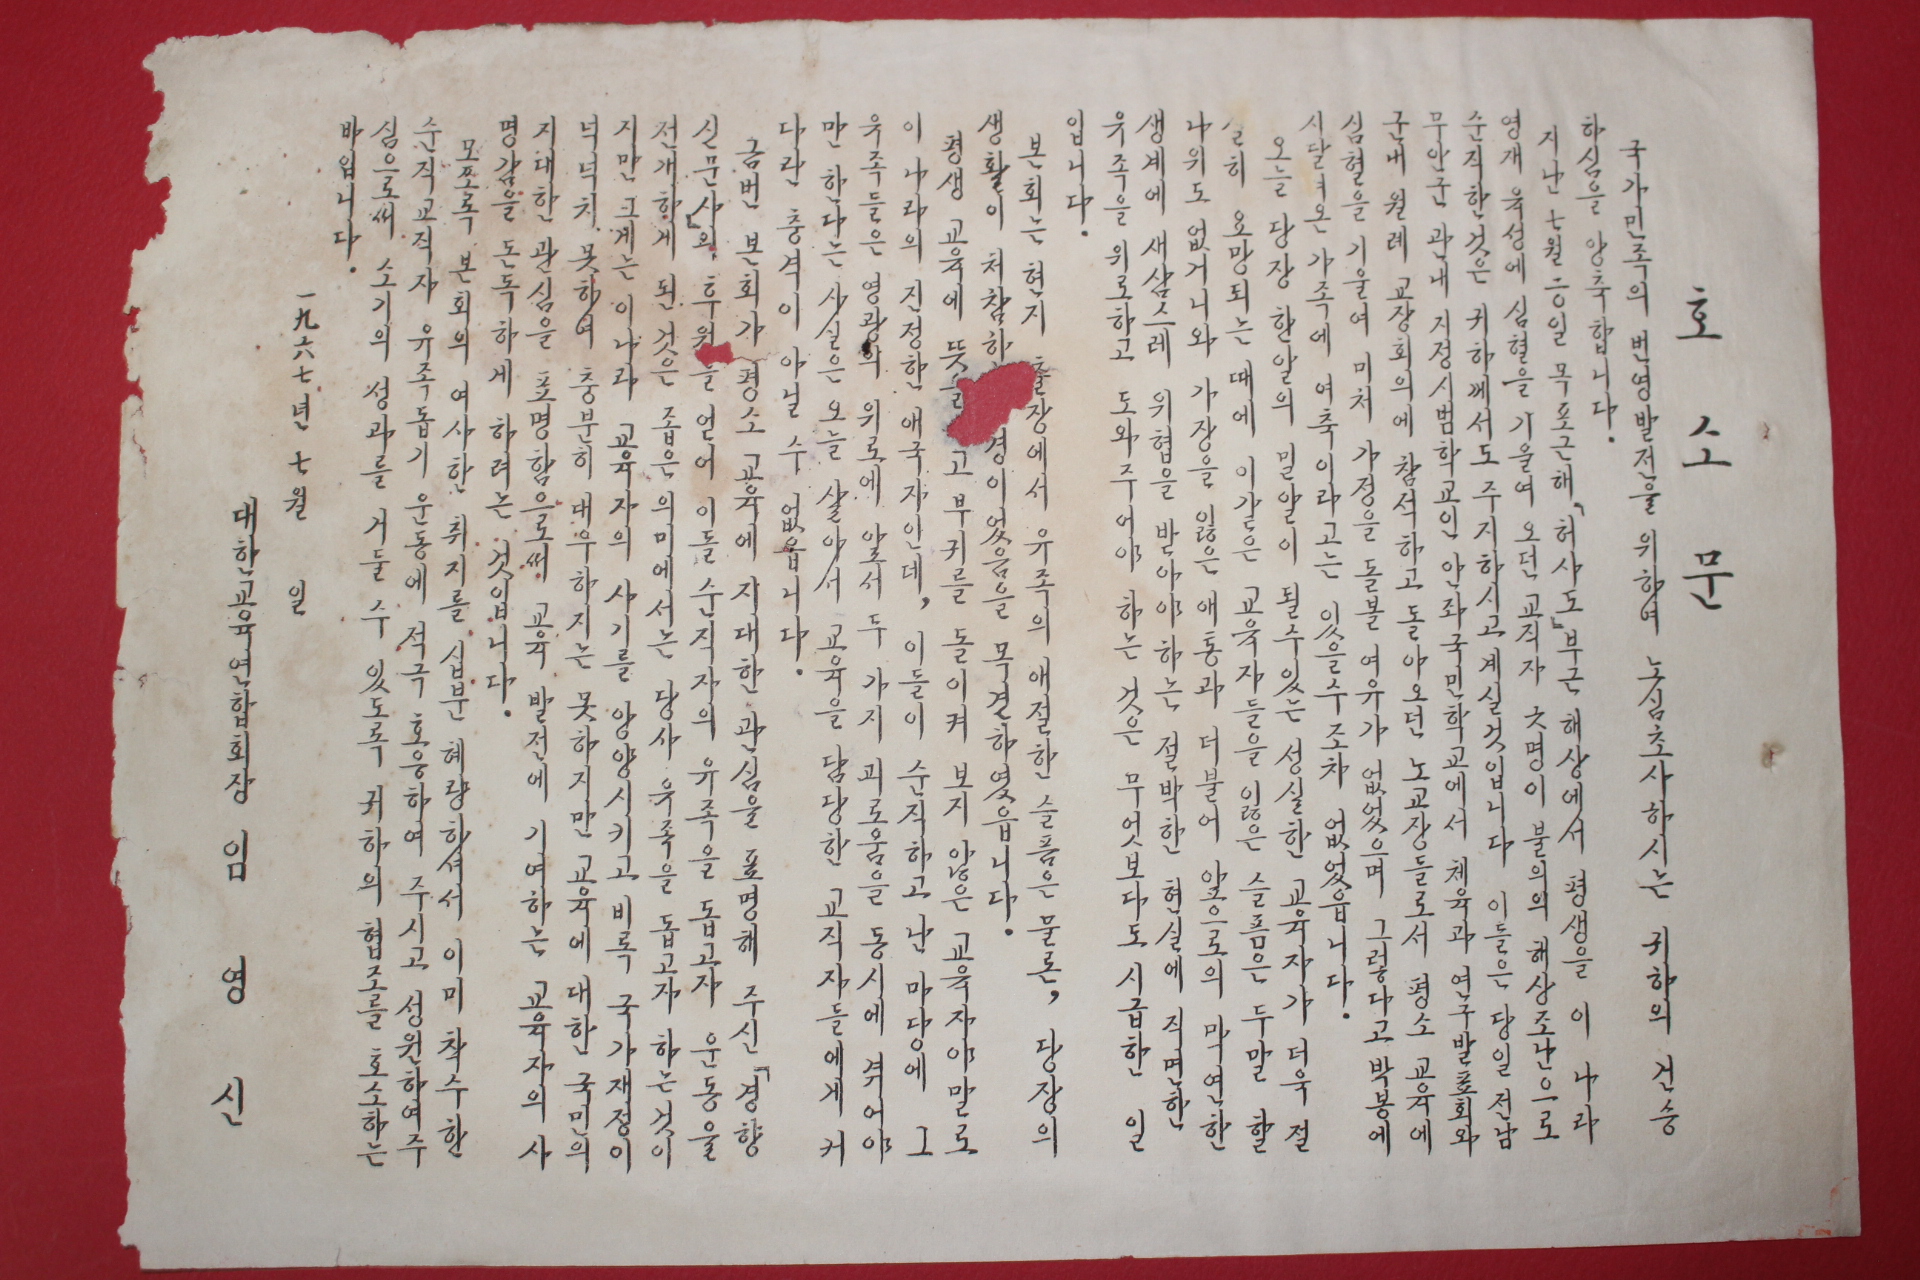 호소문
국가민족의 번영발전을 위하여 노심초사하시는 귀하의 건승
하심을 앙축합니다.
지난 七월 일 목포근해 「허사도」부근 해상에서 평생을 이 나라
영재 육성에 심혈을 기울여 오던 교직자 명이 불의의 해상조난으로
순직한것은 귀하께서도 주지하시고 계실것입니다 이들은 당일 전남
무안군 관내 지정시범학교인 안좌국민학교에서 체육과 연구발표회와
군내 월례 교장회의에 참석하고 돌아오던 노교장들로서 평소 교육에
심혈을 기울여 미처 가정을 돌볼 여유가 없었으며 그렇다고 박봉에
시달려온 가족에 여축이라고는 있을수조차 없었읍니다.
오늘 당장 한알의 밀알이 될수있는 성실한 교육자가 더욱 절
실히 요망되는 때에 이같은 교육자들을 잃은 슬픔은 두말 할
나위도 없거니와 가장을 잃은 애통과 더불어 앞으로의 막연한
생계에 새삼스레 위협을 받아야하는 절박한 현실에 직면한
유족을 위로하고 도와주어야 하는 것은 무엇보다도 시급한 일
입니다.
본회는 현지 출장에서 유족의 애절한 슬픔은 물론, 당장의
생활이 처참한 경이었음을 목견하였읍니다.
평생 교육에 뜻을 고 부귀를 돌이켜 보지 않은 교육자야말로
이 나라의 진정한 애국자인데, 이들이 순직하고 난 마당에 그
유족들은 영광의 위로에 앞서 두 가지 괴로움을 동시에 겪어야
만 한다는 사실은 오늘 살아서 교육을 담당한 교직자들에게 커
다란 충격이 아닐 수 없읍니다.
금번 본회가 평소 교육에 지대한 관심을 표명해 주신 「경향
신문사」의 후원을 얻어 이들 순직자의 유족을 돕고자 운동을
전개하게 된 것은 좁은 의미에서는 당사 유족을 돕고자 하는것이
지만 크게는 이나라 교육자의 사기를 앙양시키고 비록 국가재정이
넉넉치 못하여 충분히 대우하지는 못하지만 교육에 대한 국민의
지대한 관심을 표명함으로써 교육 발전에 기여하는 교육자의 사
명감을 돈독하게 하려는 것입니다.
모쪼록 본회의 여사한 취지를 십분 혜량하셔서 이미 착수한
순직교직자 유족돕기 운동에 적극 호응하여 주시고 성원하여주
심으로써 소기의 성과를 거둘 수 있도록 귀하의 협조를 호소하는
바입니다.
一九六七년 七월 일
대한교육연합회장 임영신